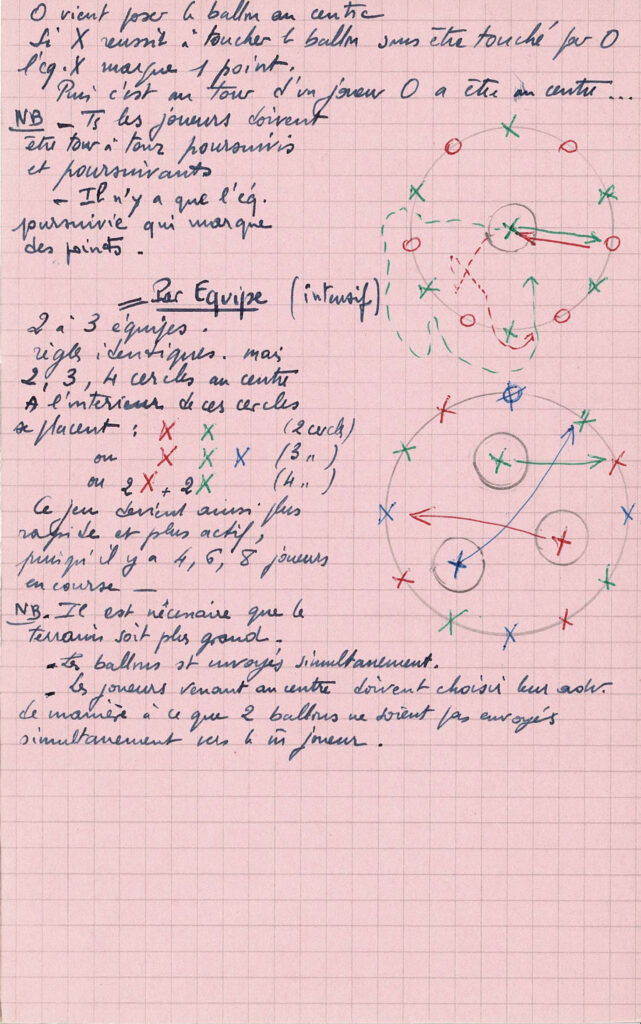 O vient poser le ballon au centre
Si X reussit à toucher le ballon sans être touché par O
l'éq. X marque 1 point.
Puis c'est au tour d'un joueur O a être au centre...
NB - Ts les joueurs doivent
être tour à tour poursuivis
et poursuivants
- Il n'y a que l'éq.
poursuivie qui marque
des points.
= Par Equipe (intensif)
2 à 3 équipes.
règles identiques. mais
2, 3, 4 cercles au centre
A l'intérieur de ces cercles
se placent : X X (2 cercles)
ou X X X (3 ")
ou 2X + 2X (4 ")
Ce jeu devient ainsi plus
rapide et plus actif,
puisqu'il y a 4, 6, 8 joueurs
en course -
NB. Il est nécessaire que le
terrain soit plus grand.
- Les ballons st envoyés simultanement.
- Les joueurs venant au centre doivent choisir leur adv.
de manière à ce que 2 ballons ne soient pas envoyés
simultanement vers le m̄ joueur.